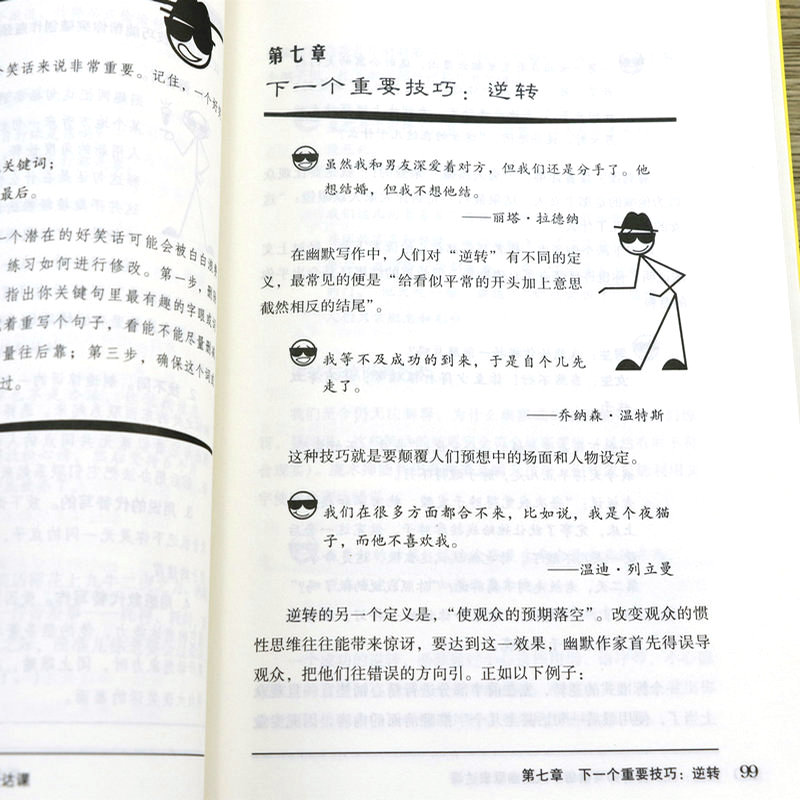 笑话来说非常重要。记住，一个好
关键词；
最后。
一个潜在的好笑话可能会被白白
练习如何进行修改。第一步，
指出你关键句里最有趣的字眼或
着重写个句子，看能不能尽量
量往后靠；第三步，确保这个词
过。
达课
第七章
下一个重要技巧：逆转
虽然我和男友深爱着对方，但我们还是分手了。他
想结婚，但我不想他结。
——丽塔·拉德纳
在幽默写作中，人们对“逆转”有不同的定
义，最常见的便是“给看似平常的开头加上意思
截然相反的结尾”。
我等不及成功的到来，于是自个儿先
走了。
——乔纳森·温特斯
这种技巧就是要颠覆人们预想中的场面和人物设定。
我们在很多方面都合不来，比如说，我是个夜猫
子，而他不喜欢我。
——温迪·列立曼
逆转的另一个定义是，“使观众的预期落空”。改变观众的惯
性思维往往能带来惊讶，要达到这一效果，幽默作家首先得误导
观众，把他们往错误的方向引。正如以下例子：
第七章 下一个重要技巧：逆转 99